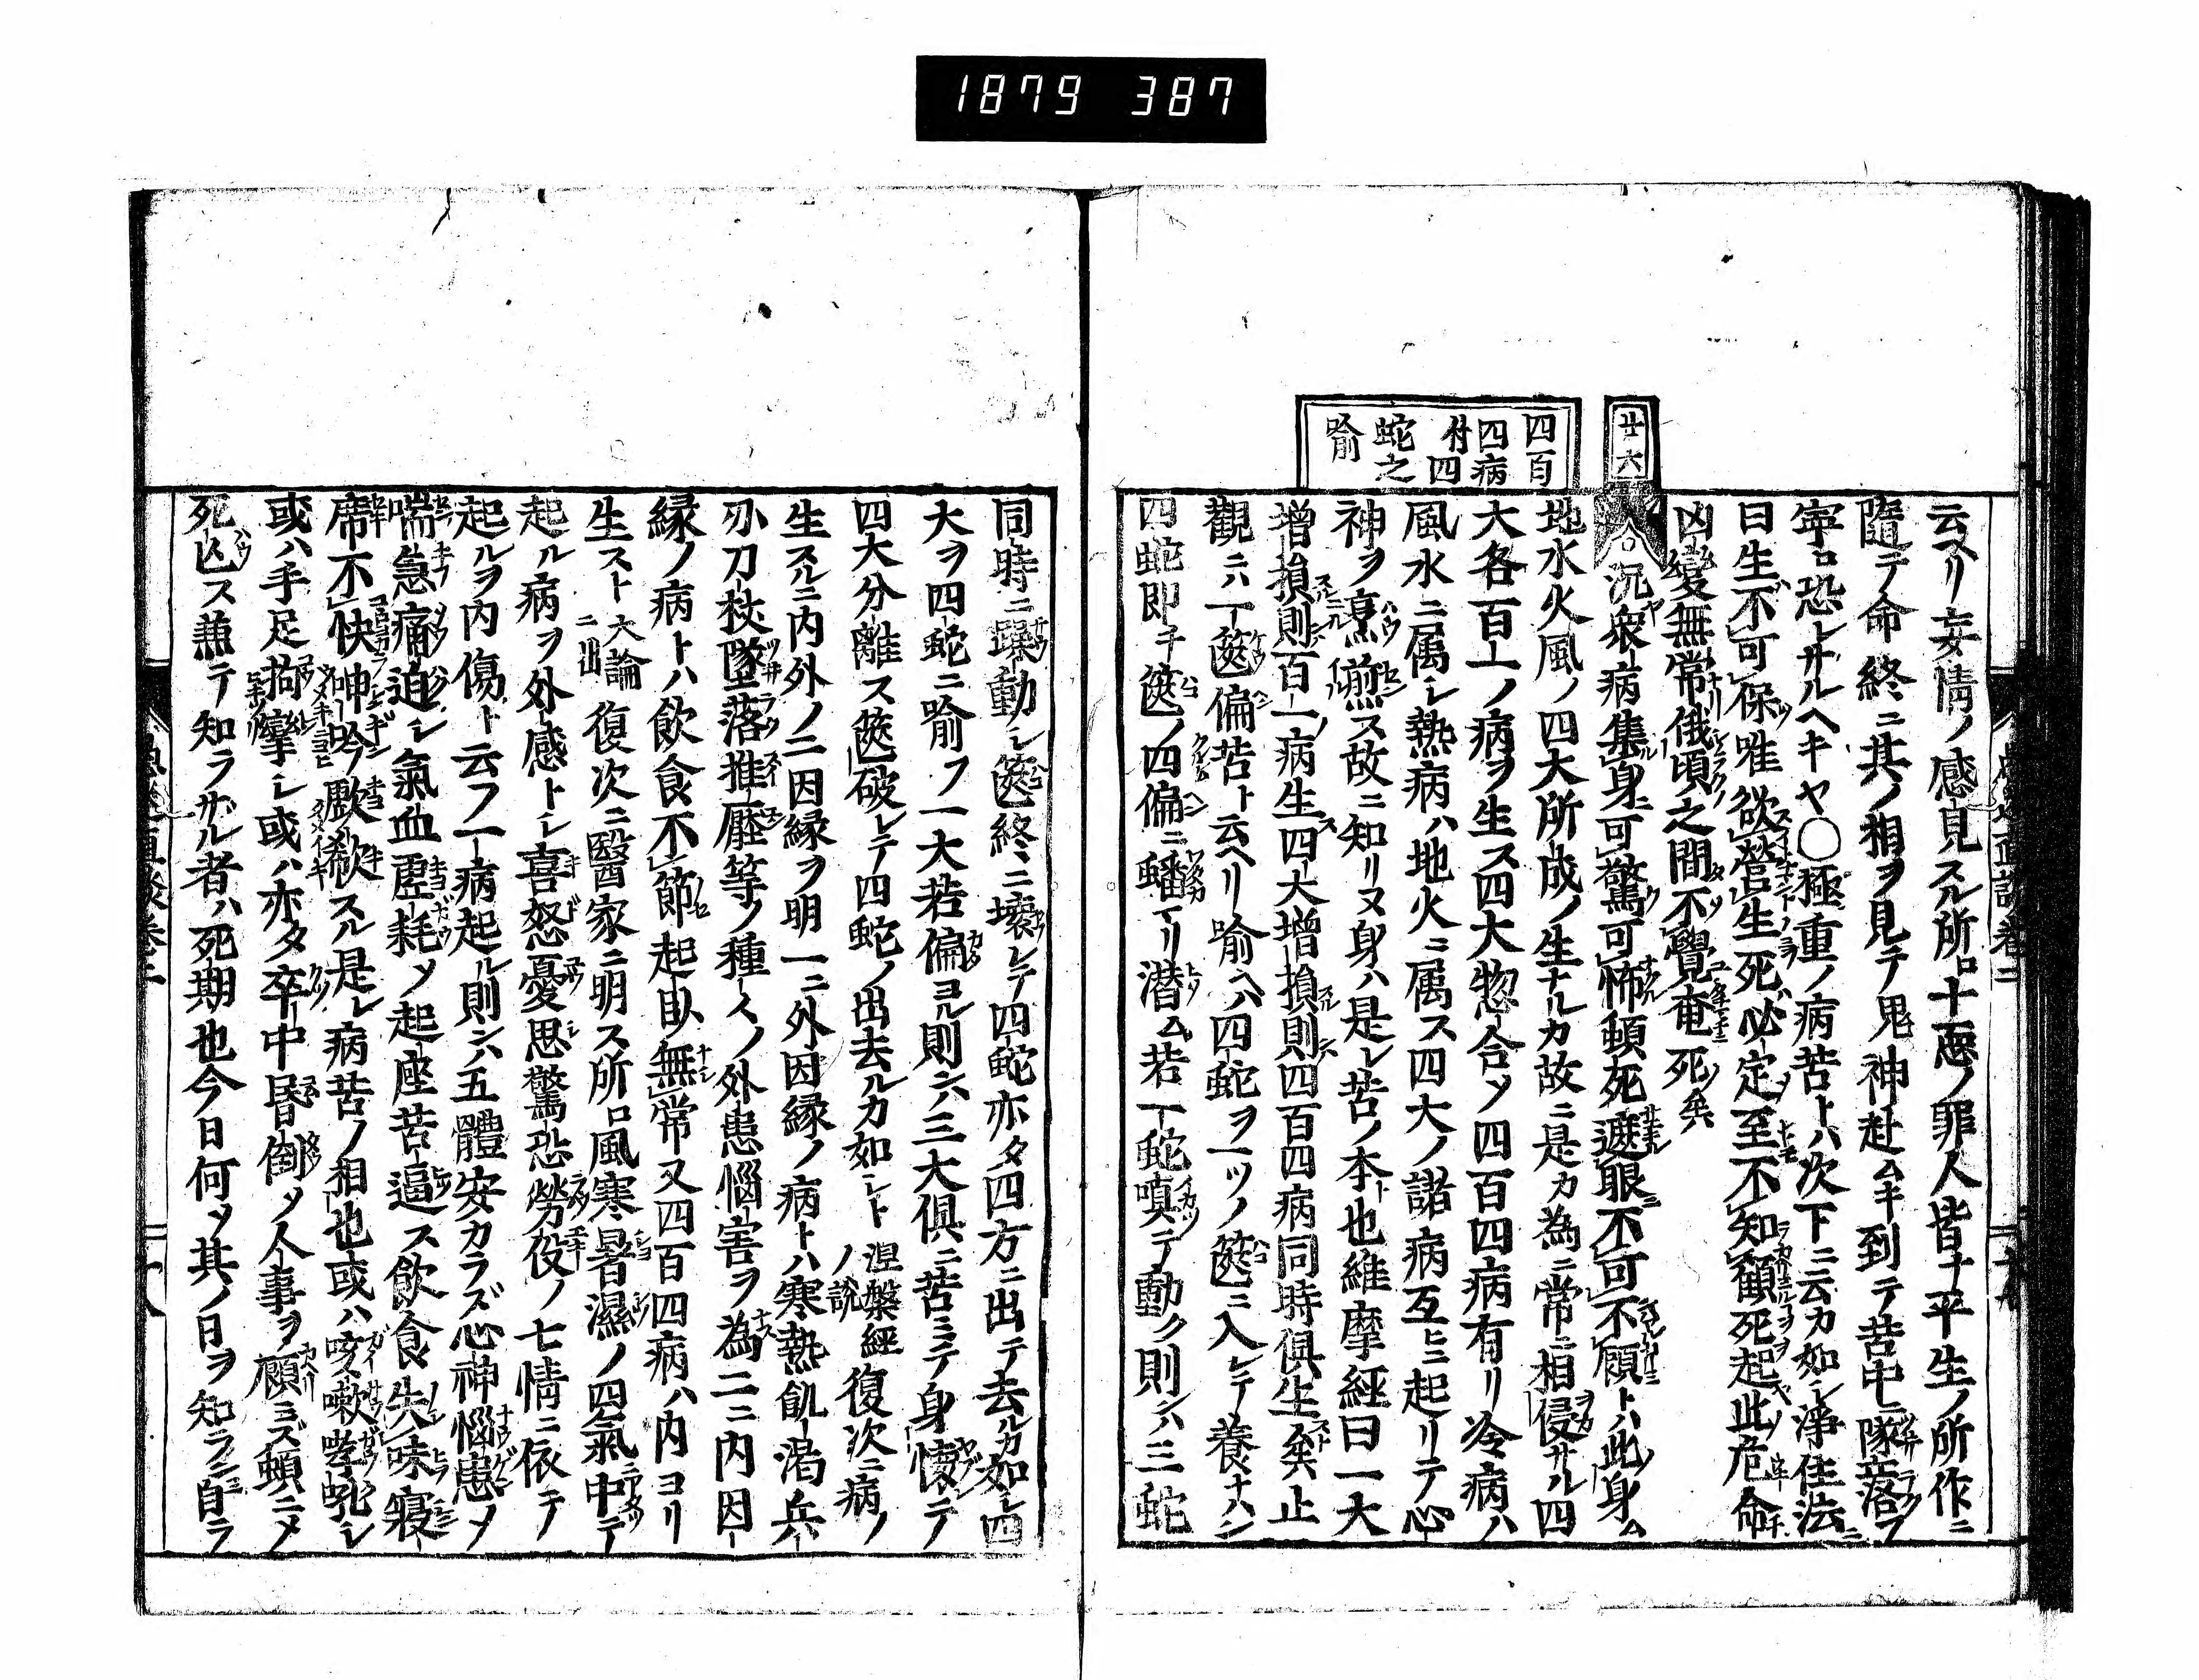 1879 387
廿六
四百
四病
付四
蛇之
喩
云ヘリ妄情ノ感見スル所ロ十惡ノ罪人皆ナ平生ノ所作ニ
隨テ命終ニ其ノ相ヲ見テ鬼神赴ムキ到テ苦中ニ隊落フ
寧ロ恐レサルヘキヤ〇極重ノ病苦トハ次下ニ云カ如レ淨住法ニ
曰生不可保唯欲營生死必定至不知顧死起此危命
凶變無常俄頃之間不覺奄死矣
〇況衆病集身可驚可怖頓死遮眼不可不顧トハ此身ム
地水火風ノ四大所成ノ生ナルカ故ニ是カ為ニ常ニ相侵サル四
大各百一ノ病ヲ生ス四大惣合〆四百四病有リ冷病ハ
風水ニ属レ熱病ハ地火ニ属ス四大ノ諸病互ヒニ起リテ心
神ヲ煎ス故ニ知リヌ身ハ是レ苦ノ本也維摩經曰一大
増損則百一病生四大増損則四百四病同時倶生矣止
觀ニハ一篋偏苦ト云ヘリ喩ヘハ四蛇ヲ一ツノ篋ニ入レテ養ナハン
四蛇即チ篋ノ四偏ニ蟠マリ潜ム若一蛇嗔テ動ク則ンハ三蛇
同時ニ躁動レ篋終ニ壊レテ四蛇亦タ四方ニ出テ去ルカ如レ四
大ヲ四蛇ニ喩フ一大若偏ヨル則ンハ三大倶ニ苦ミテ身懐テ
四大分離ス篋破レテ四蛇ノ出去ルカ如レト涅槃經ノ説復次ニ病ノ
生スルニ内外ノ二因縁ヲ明一ニ外因縁ノ病トハ寒熱飢渇兵
刃刀杖墜落推壓等ノ種々ノ外患悩害ヲ為ニニ内因
縁ノ病トハ飲食不節起臥無常又四百四病ハ内ヨリ
生スト大論ニ出復次ニ醫家ニ明ス所ロ風寒暑濕ノ四氣中テ
起ル病ヲ外感トレ喜怒憂思驚恐勞役ノ七情ニ依テ
起ルヲ内傷ト云フ一病起ル則ンハ五體安カラズ心神悩患〆
喘急痛迫レ氣血虚耗〆起座苦逼ス飲食失味寝
席不快呻吟歔欷スル是レ病苦ノ相也或ハ咳嗽哮吼レ
或ハ手足拘攣レ或ハ亦タ卒中昏倒〆人事ヲ顧ミズ頓ニ〆
死亡ス兼テ知ラザル者ハ死期也今日何ソ其ノ日ヲ知ラン自ラ